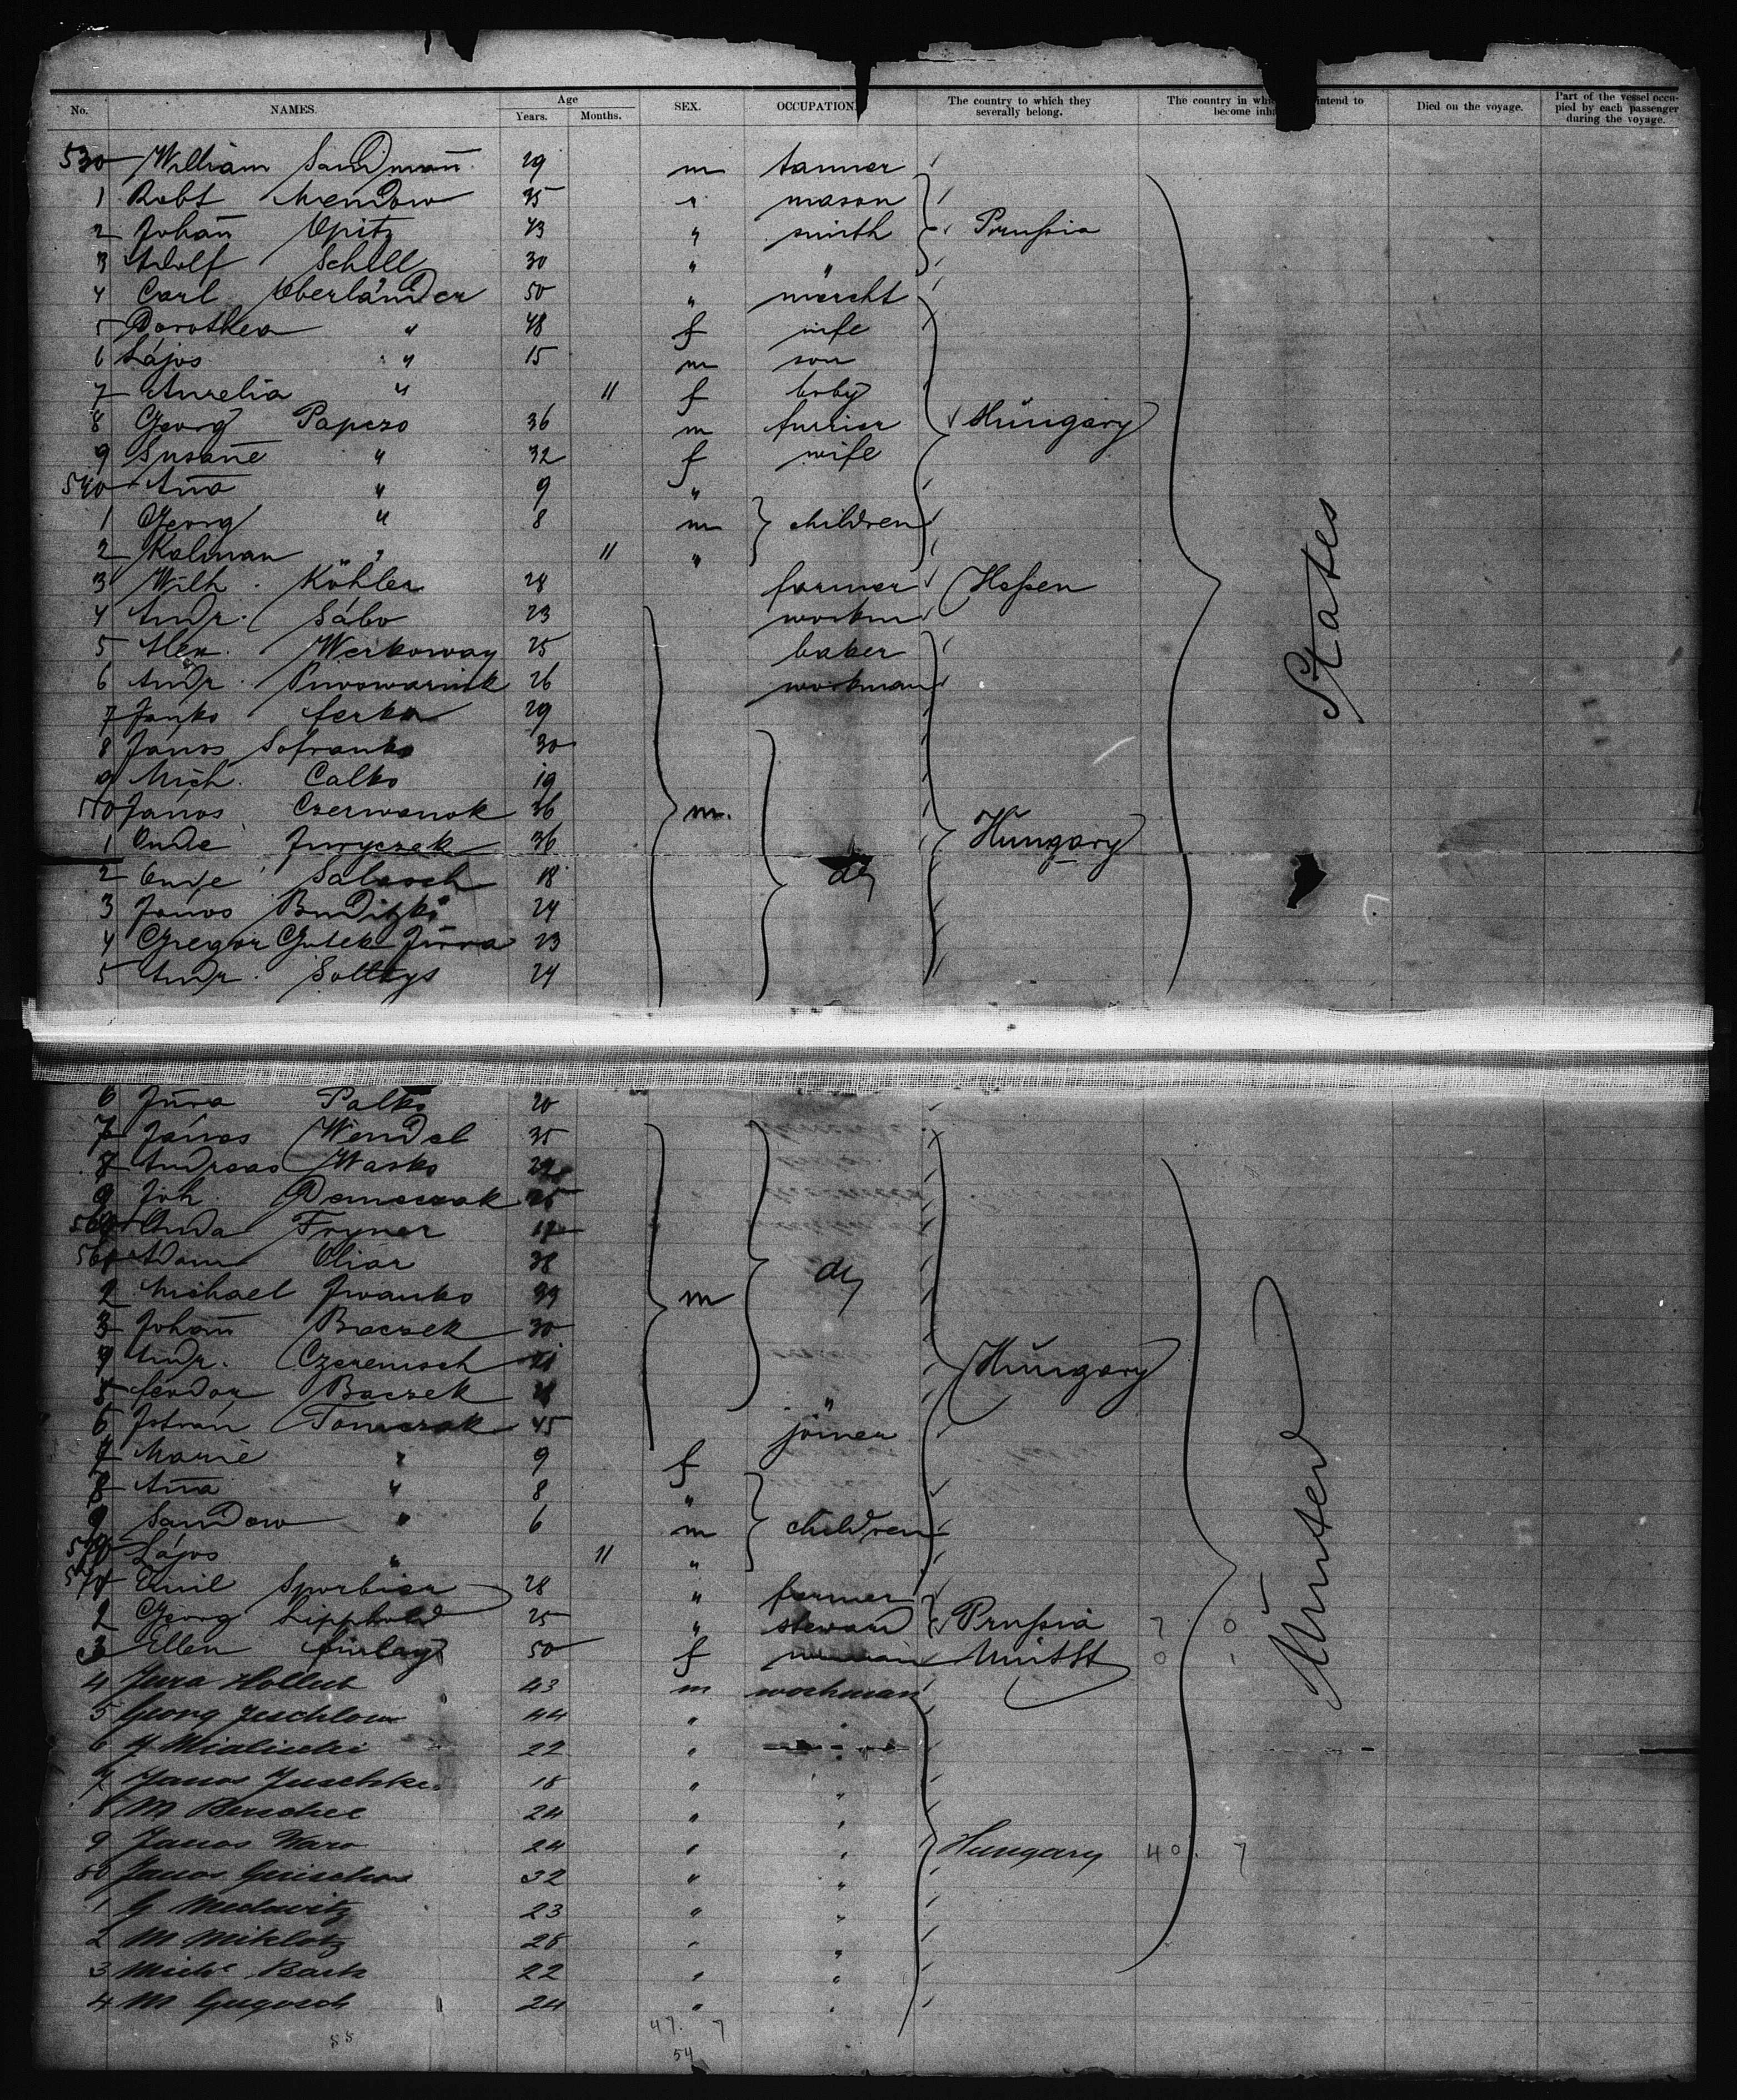 No. NAMES. Age Years. Months. SEX. OCCUPATION The country to which they severally belong. The country in intend to become Died on the voyage. Part of the vessel occupied by each passenger during the voyage.
530 William Sandman̄ 29 m tanner
1 Robt Mendow 35 " mason
2 Johan̄ Opitz 43 " smith Prussia
3 Adolf Schell 30 " "
4 Carl Oberländer 50 " mercht
5 Dorothea " 48 f wife
6 Lájos " 15 m son
7 Aurelia " 11 f baby
8 Georg Papczo 36 m furrier Hungary
9 Susan̄e " 32 f wife
540 An̄a " 9 "
1 Georg " 8 m children
2 Kalman " 11 "
3 Wilh. Köhler 28 farmer Hessen
4 Andr. Sábo 23 workm
5 Alex. Werkoway 25 baker
6 Andr. Piwowarnik 26 workman
7 Janko ferko 29
8 János Sofranko 30
9 Mich. Calko 19
550 János Czerwanok 36 m.
1 Onde Juryczek 36 Hungary
2 Onde Salasch 18 do
3 János Buditzki 24
4 Gregor Gutek Jura 23
5 Andr. Solttys 24
States
6 Jura Palko 20
7 János Wendel 35
8 Andreas Wasko
9 Joh. Demeczak
560 Onda Fryner
561 Adam Oliar 38 do
2 Michael Jwanko m
3 Johan̄ Baczek 30
4 Andr. Czeremsch Hungary
5 feodor Baczek "
6 Jstván Tomczak 45 joiner
7 Marie " 9 f
8 An̄a " 8 "
9 Sandow " 6 m children
570 Lájos " 11 "
571 Emil Sperbier 28 " farmer
2 Georg Lipphold 25 " steward Prussia 7 0
3 Ellen finlay 50 f Unit St 0 1
4 Jura Hollub 43 m workman
5 Georg Jeschlow 44 " "
6 J Mialischi 22 " "
7 Janos Juschke 18 " "
8 M Berschel 24 " "
9 Janos Waro 24 " " Hungary 40. 7
80 Janos 32 " "
1 G Medowitz 23 " "
2 M Miklotz 28 " "
3 Michl Bartz 22 " "
4 M Gugosch 24 " "
55 47. 7
54
United